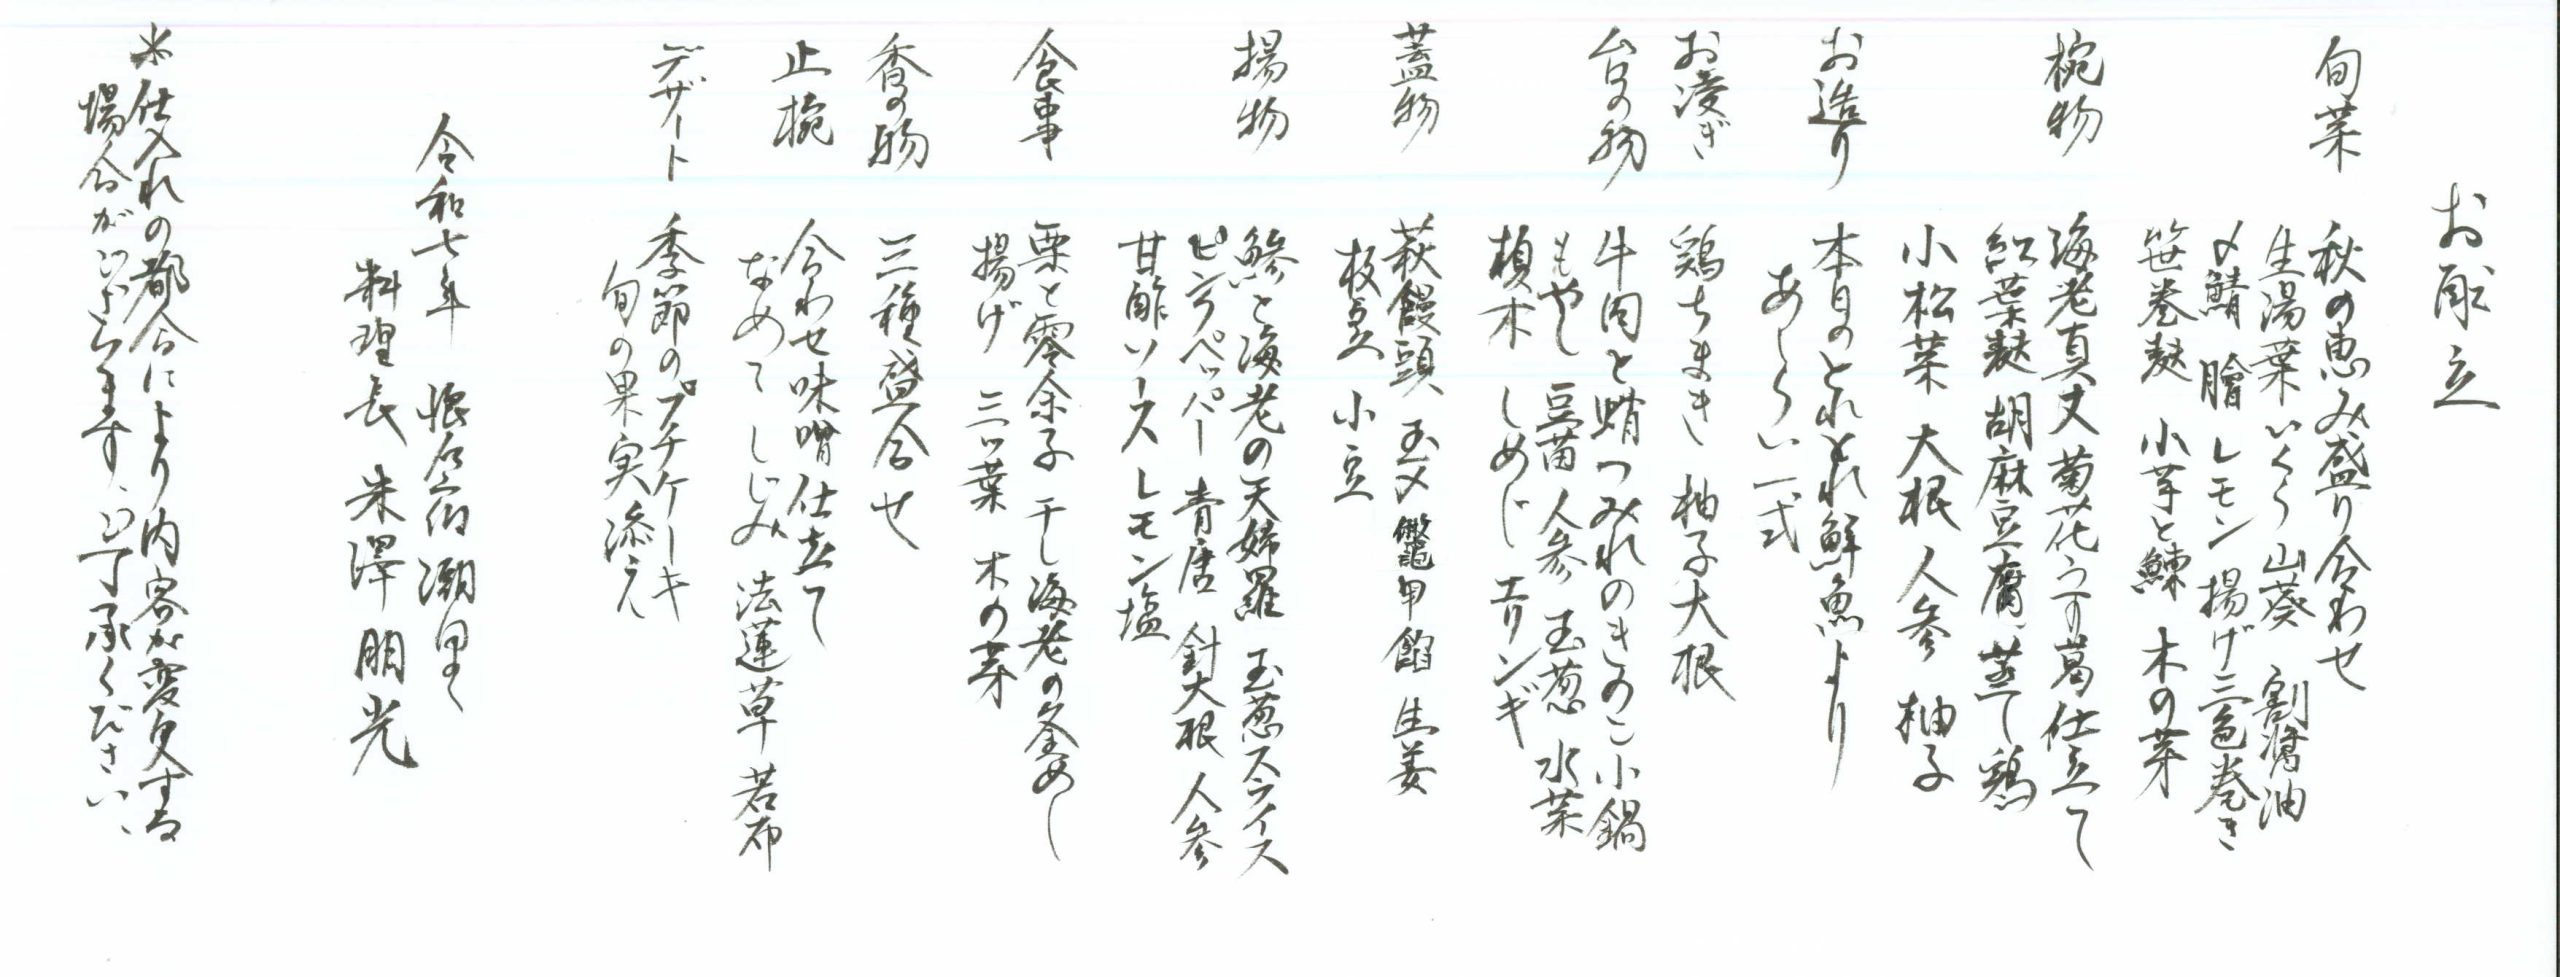 お献立
旬菜 秋の恵み盛り合わせ
生湯葉 いくら 山葵 割醤油
〆鯖 膾 レモン 揚げ三色巻き
笹巻麸 小芋と鰊 木の芽
椀物 海老真丈 菊花うす葛仕立て
紅葉麸 胡麻豆腐 蒸し鶏
小松菜 大根 人参 柚子
お造り 本日のとれとれ鮮魚より
あしらい一式
お凌ぎ 鶏ちまき 柚子大根
台の物 牛肉と蛸つみれのきのこ小鍋
もやし 豆苗 人参 玉葱 水菜
榎木 しめじ エリンギ
蓋物 萩饅頭 玉〆 鼈甲餡 生姜
枝豆 小豆
揚物 鯵と海老の天婦羅 玉葱スライス
ピンクペッパー 青唐 針大根 人参
甘酢ソース レモン塩
食事 栗と零余子 干し海老の釜めし
揚げ 三ッ葉 木の芽
香の物 三種盛合せ
止椀 合わせ味噌仕立て
なめこ しじみ 法蓮草 若布
デザート 季節のプチケーキ
旬の果実添え
令和七年 潮里
料理長 朱澤 朋光
※仕入れの都合により内容が変更する
場合がございます。ご了承ください。